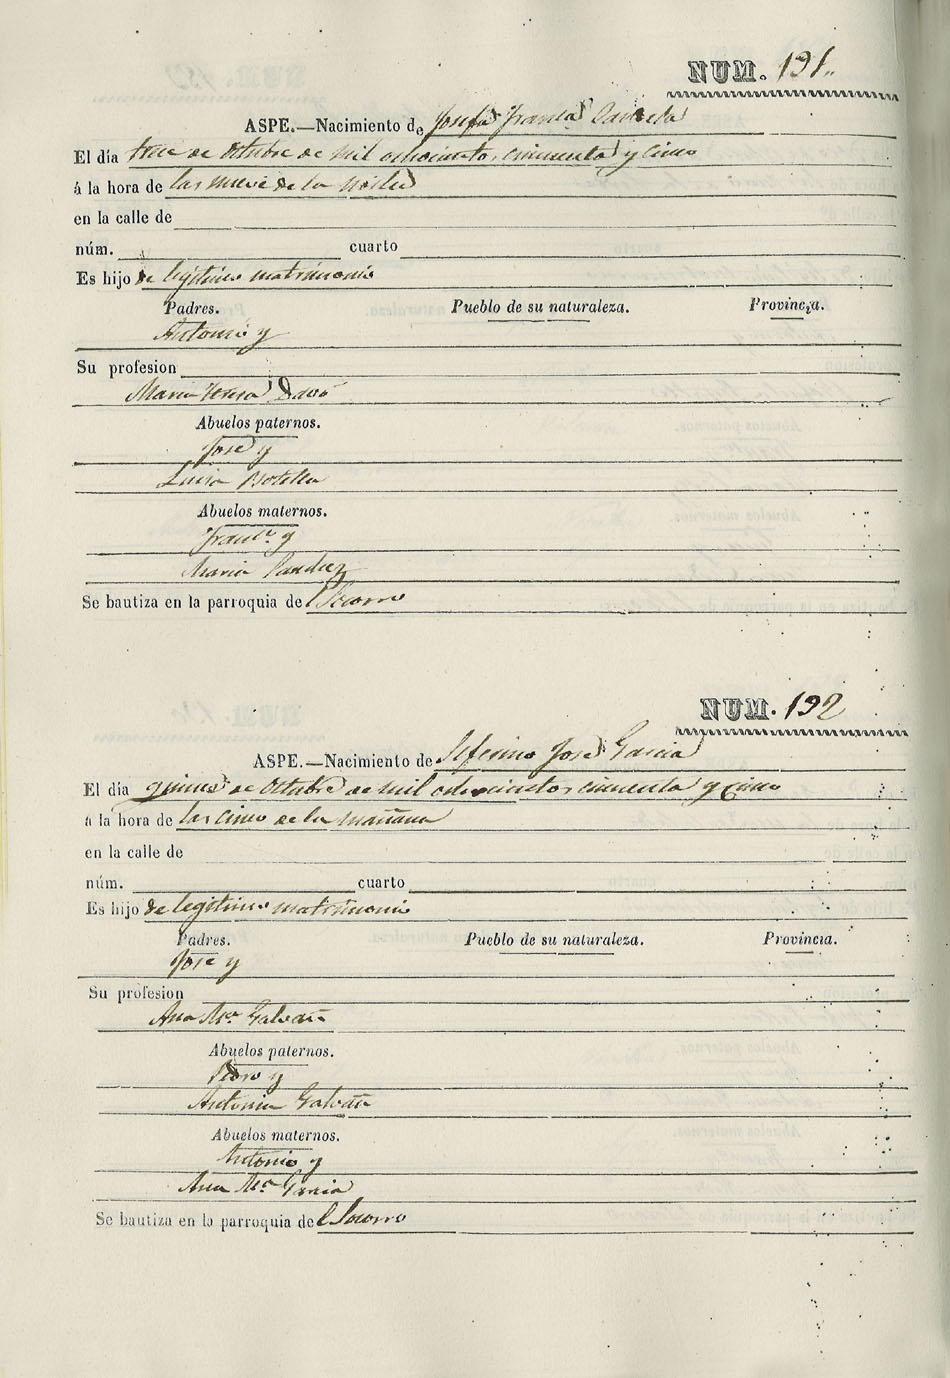 NUM. 191.
ASPE.—Nacimiento de Josefa Franca
El día trece de Octubre de mil ochocientos, cincuenta y cinco
á la hora de las nueve de la noche
en la calle de
núm. cuarto
Es hijo de legitimo matrimonio
Padres. Pueblo de su naturaleza. Provincia.
Antonio y
Su profesion
Maria Teresa Davó
Abuelos paternos.
José y
Luisa Botella
Abuelos maternos.
Franco. y
Maria
Se bautiza en la parroquia del Socorro
NUM. 192
ASPE.—Nacimiento de Seferino José Garcia
El día quince de Octubre de mil ochocientos, cincuenta y cinco
á la hora de las cinco de la mañana
en la calle de
núm. cuarto
Es hijo de legitimo matrimonio
Padres. Pueblo de su naturaleza. Provincia.
José y
Su profesion
Ana Ma. Galvañ
Abuelos paternos.
Pedro y
Antonia Galvañ
Abuelos maternos.
Antonio y
Ana Ma. Garcia
Se bautiza en la parroquia del Socorro